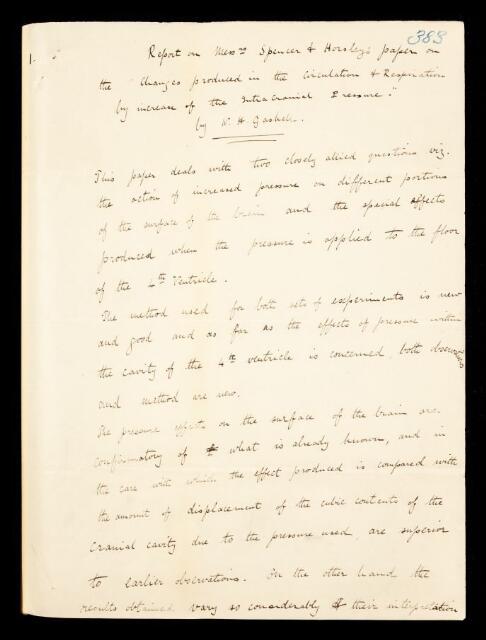 383
1.
Report on Messrs Spencer & Horsley's paper on
the "Changes produced in the Circulation & Respiration
by increase of the Intracranial Pressure."
by W. H. Gaskell.
This paper deals with two closely allied questions viz.
the action of increased pressure on different portions
of the surface of the brain and the special effects
produced when the pressure is applied to the floor
of the 4th Ventricle.
The method used for both sets of experiments is new
and good and as far as the effects of pressure within
the cavity of the 4th ventricle is concerned, both observations
and method are new.
The pressure effects on the surface of the brain are
confirmatory of what is already known, and in
the care with which the effect produced is compared with
the amount of displacement of the cubic contents of the
cranial cavity due to the pressure used, are superior
to earlier observations. On the other hand the
results obtained vary so considerably & their interpretation